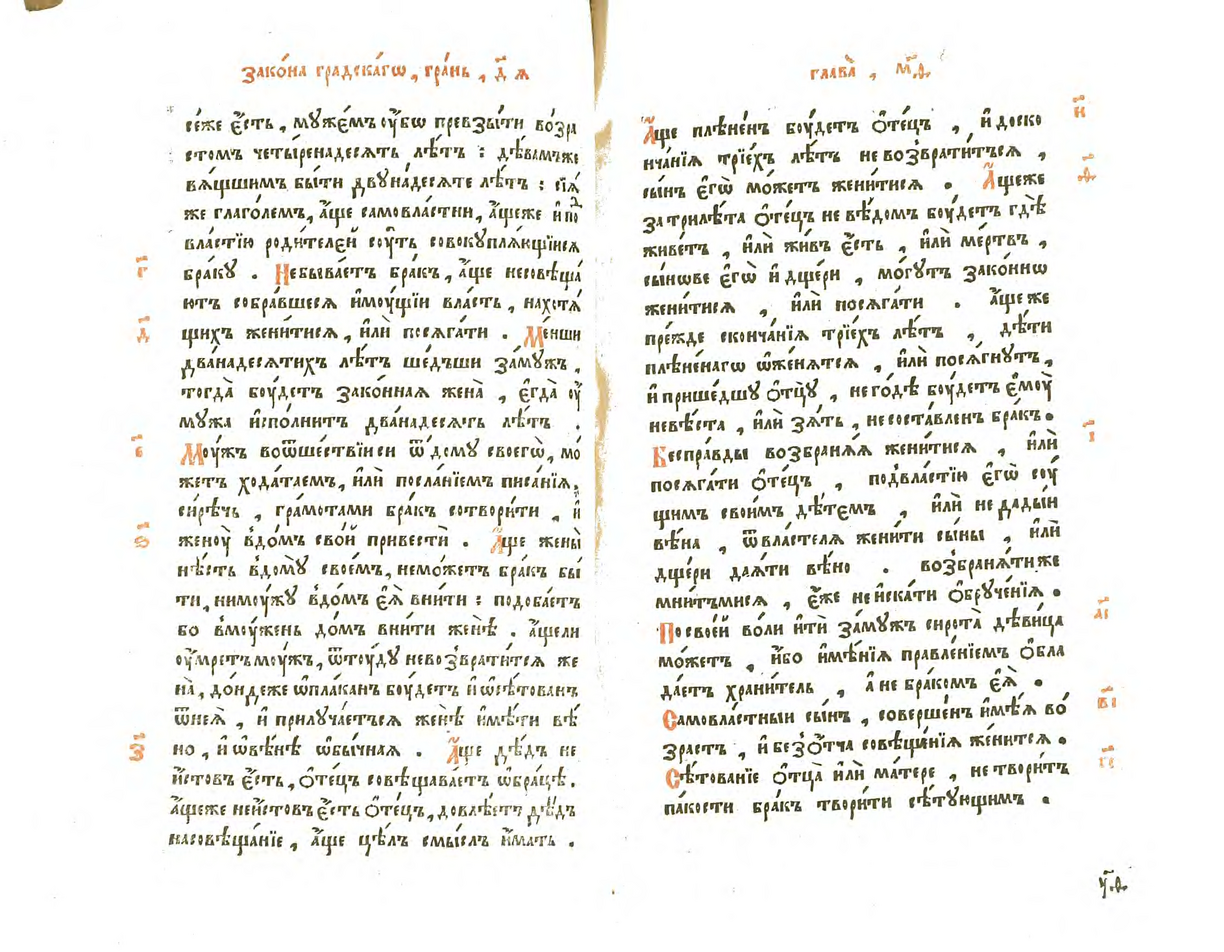 Зако́на градска́гѡ, гра́нь, д҃ ѧ
се́же є҆́сть, мꙋже́мъ ᲂу҆́бѡ превзы́ти во́зра
стомъ четы́ренадесять лѣ́тъ : дѣ́вамъже
вѧ́щшимъ бы́ти двꙋна́десяте лѣ́тъ : сїѧ̀
же глаго́лемъ, а҆́ще самовла́стни, а҆́щеже и҆по́д
вла́стїю роди́телей сꙋ́ть совокꙋплѧ́ющїисѧ
бра́кꙋ . Небыва́етъ бра́къ, а҆́ще несовѣща́
г҃
ютъ собра́вшеся и҆мꙋ́щїи вла́сть, нахотѧ́
щихъ жени́тися, и҆лѝ посѧга́ти . Ме́нши
д҃
двана́десятихъ лѣ́тъ ше́дъши за́мꙋжъ,
тогда̀ бꙋ́детъ зако́нная жена̀, є҆гда̀ ᲂу҆
мꙋ́жа и҆спо́лнитъ двана́десять лѣ́тъ .
Мꙋ́жъ воѿше́ствїиси ѿ до́мꙋ своегѡ̀, мо́
є҃
жетъ хода́таемъ, и҆лѝ посла́нїемъ писа́нїя,
си́рѣчь, гра́мотами бра́къ сотвори́ти, и҆
женꙋ̀ вдо́мъ сво́й привестѝ . А҆́ще жены̀
ѕ҃
нѣ́сть вдомꙋ̀ своє́мъ, немо́жетъ бра́къ бы́
ти, нимꙋ́жꙋ вдо́мъ є҆ѧ̀ вни́ти : подоба́етъ
бо вмꙋ́жень до́мъ вни́ти женѣ̀ . а҆́щели
ᲂу҆́мретъ мꙋ́жъ, ѿтꙋ́дꙋ невозврати́тся же
на̀, до́ндеже ѡ҆пла́канъ бꙋ́детъ и҆ ѡ҆сѣ́тованъ
ѿнеѧ̀, и҆ прилꙋча́етъся женѣ̀ и҆мѣ́ти вѣ́
но, и҆ ѡ҆вѣ́нѣ ѡ҆бы́чная . А҆́ще дѣ́дъ не
з҃
и҆́стовъ є҆́сть, ѻ҆те́цъ совѣщава́етъ ѡ҆бра́цѣ.
а҆́щеже неи́стовъ є҆́сть ѻ҆те́цъ, довлѣ́етъ дѣ́дъ
насовѣща́нїе, а҆́ще цѣ́лъ смы́слъ и҆́мать .
глава̀, м҃ѳ.
А҆́ще плѣне́нъ бꙋ́детъ ѻ҆те́цъ, и҆ доско
и҃
нча́нїя трїе́хъ лѣ́тъ невозврати́тъся,
сы́нъ є҆гѡ̀ мо́жетъ жени́тися . А҆́щеже
ѳ҃
затрилѣ́та ѻ҆те́цъ невѣ́домъ бꙋ́детъ гдѣ̀
живе́тъ, и҆лѝ жи́въ є҆́сть, и҆лѝ ме́ртвъ,
сы́нове є҆гѡ̀ и҆ дще́ри, мо́гꙋтъ зако́ннѡ
жени́тися, и҆лѝ посѧга́ти . а҆́щеже
пре́жде сконча́нїя трїе́хъ лѣ́тъ, дѣ́ти
плѣне́нагѡ ѡ҆же́нятся, и҆лѝ посѧ́гнꙋтъ,
и҆ прише́дшꙋ ѻ҆тцꙋ̀, не го́дѣ бꙋ́детъ є҆мꙋ̀
невѣ́ста, и҆лѝ зѧ́ть, несоста́вленъ бра́къ.
Бесправды̀ возбранѧ́я жени́тися, и҆лѝ
і҃
посѧга́ти ѻ҆те́цъ, подвла́стїю є҆гѡ̀ сꙋ́
щимъ свои́мъ дѣ́темъ, и҆лѝ не дады́и
вѣ́на, ѿ вла́стеля жени́ти сы́ны, и҆лѝ
дще́ри даѧ́ти вѣ́но . возбранѧ́тиже
мни́тъмися, є҆́же не и҆ска́ти ѻ҆брꙋче́нїя .
Посвое́й во́ли и҆тѝ за́мꙋжъ сирота̀ дѣви́ца
а҃і
мо́жетъ, и҆́бо и҆мѣ́нїя правле́нїемъ ѻ҆бла
да́етъ храни́тель, а҆ не бра́комъ є҆ѧ̀ .
Самовла́стныи сы́нъ, соверше́нъ и҆мѣ́я во́
в҃і
зрастъ, и҆ без̾ ѻ҆́тча совѣща́нїя же́нится .
Сѣ́тованїе ѻ҆тца̀ и҆лѝ ма́тере, не твори́тъ
г҃і
па́кости бра́къ твори́ти сѣ́тꙋющимъ .
ꙋ҃ѳ.